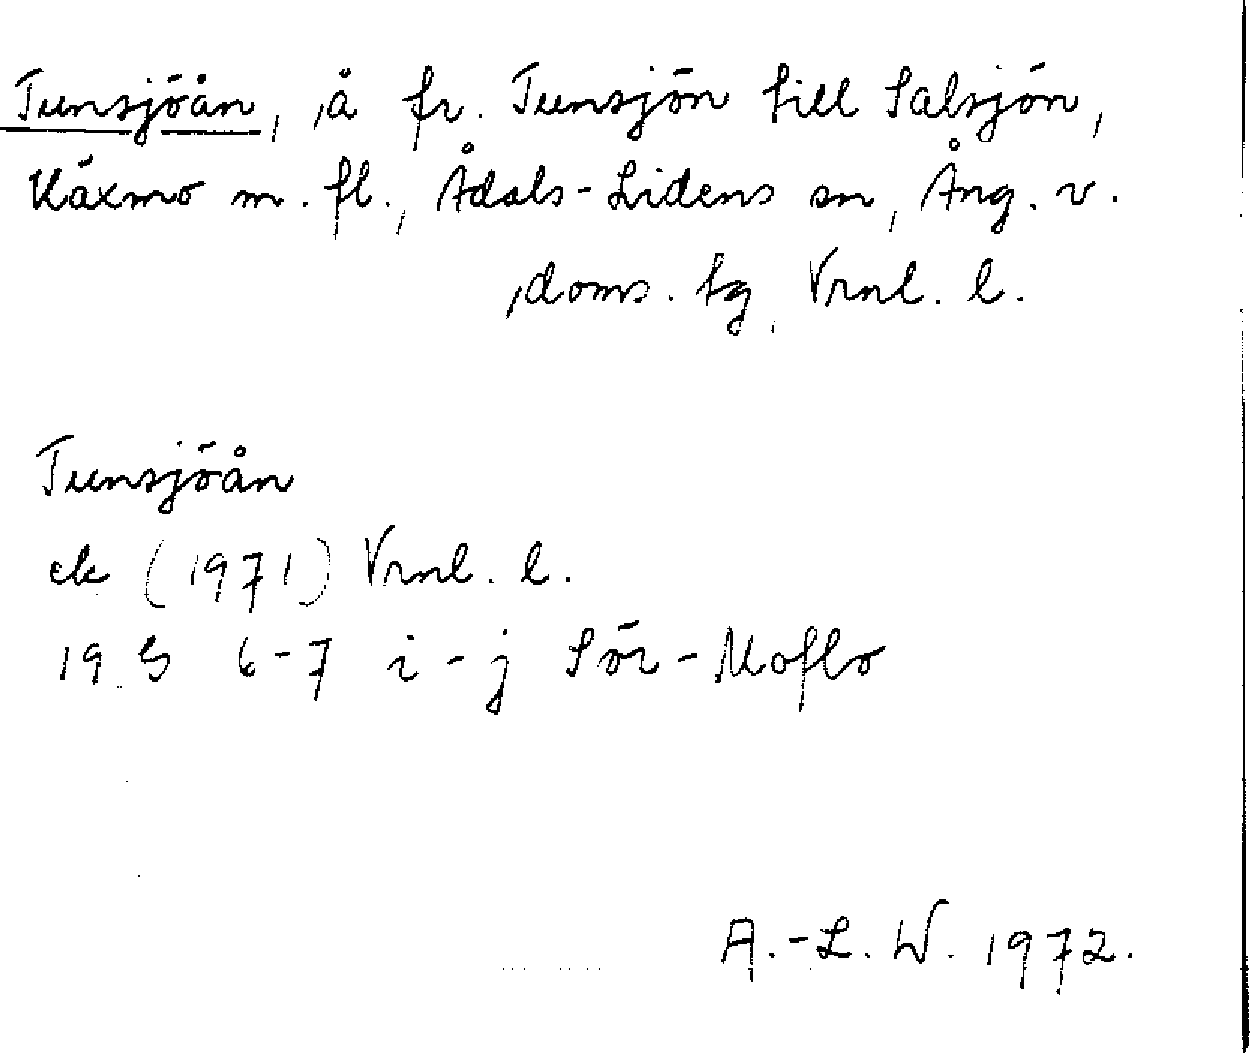 Tunsjöån, å fr. Tunsjön till Salsjön,
Käxmo m. fl., Ådals-Lidens sn, Ång. v.
doms. tg, Vrnl. l.
Tunsjöån
ek (1971) Vrnl. l.
19 G 6-7 i-j Sör-Moflo
A.-L. W. 1972.